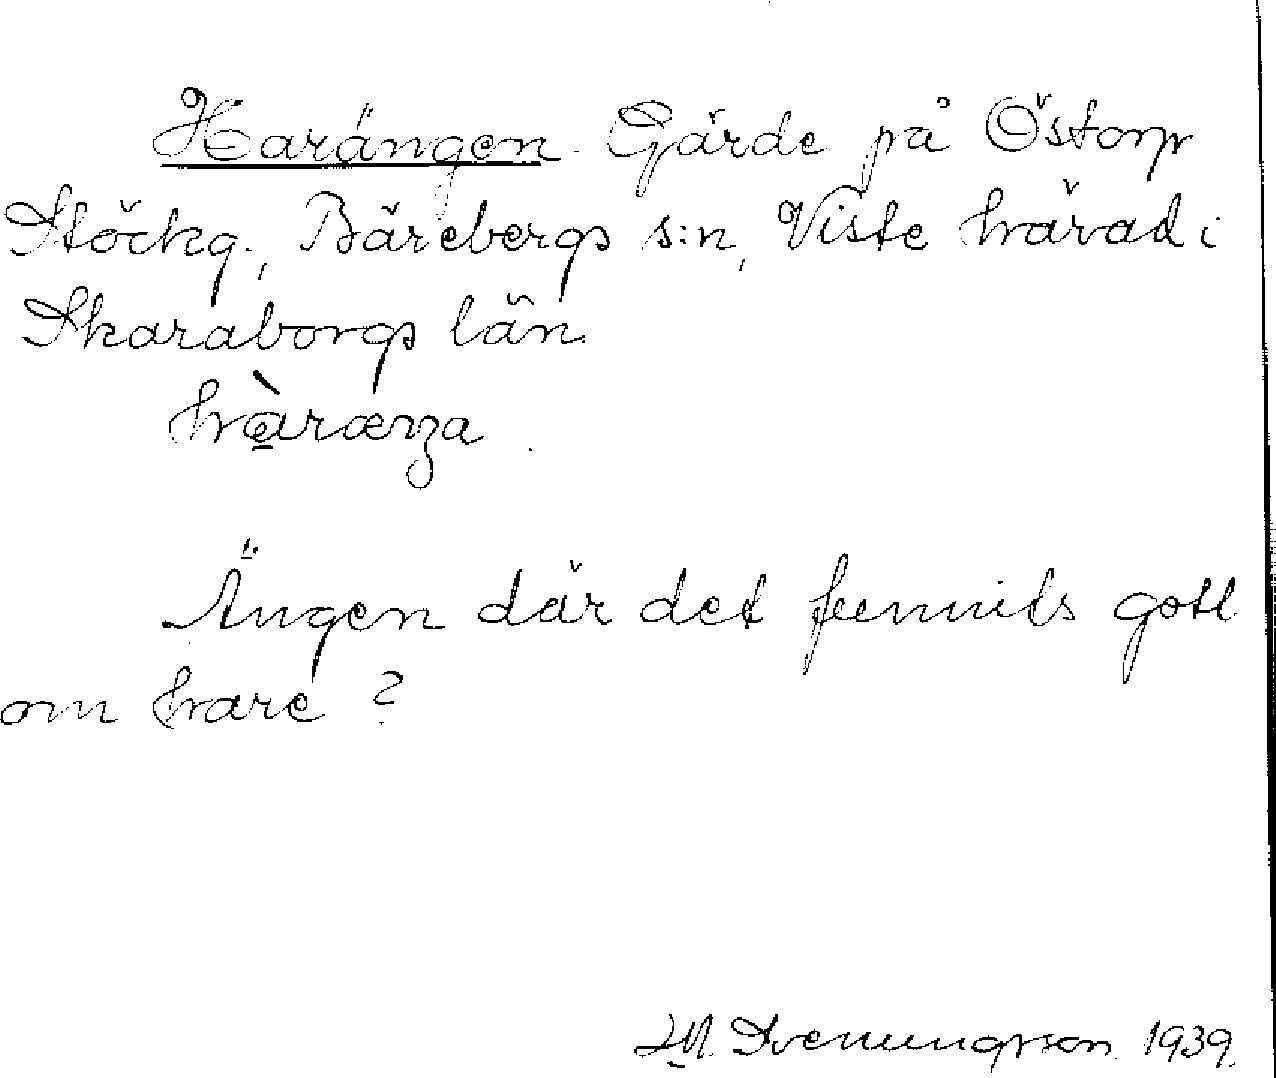 Harängen. Gärde på Östorp
Stöckg., Bärebergs s:n, Viste härad i
Skaraborgs län.
hàræŋa
Ängen där det funnits gott
om hare?
Svenungsson 1939.